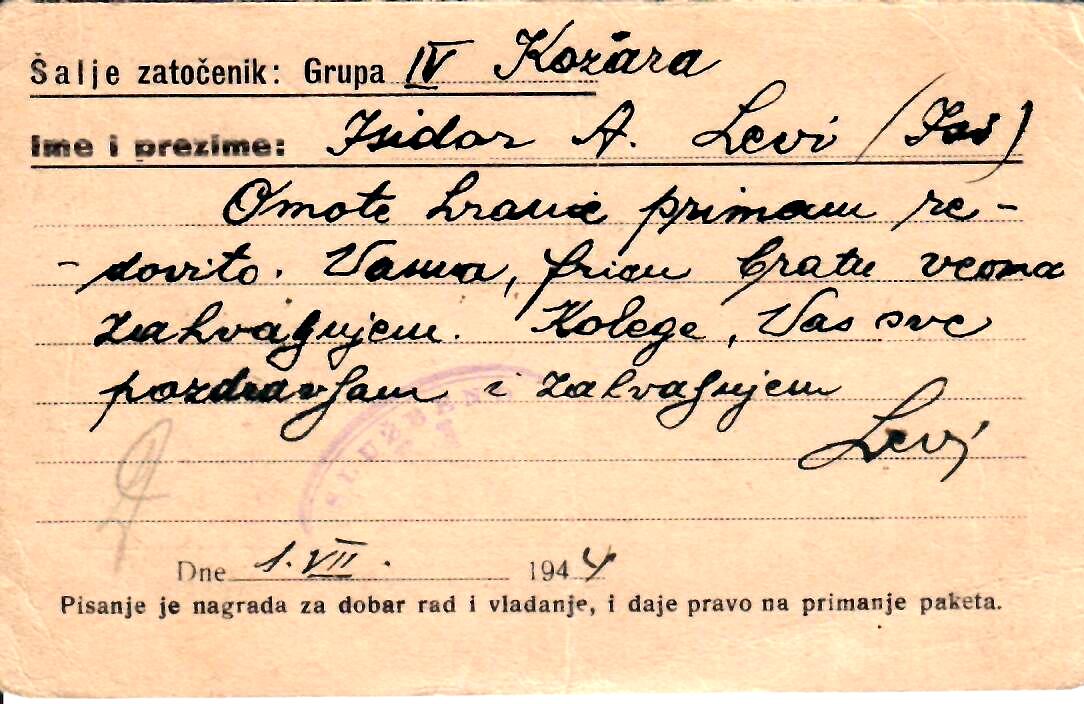 Šalje zatočenik: Grupa IV Kožara
Ime i prezime: Isidor A. Levi (Isi)
Omote hrane primam re-
-dovito. Vama, bratu veoma
zahvaljujem. Kolege, Vas sve
pozdravljam i zahvaljujem
Levi
SLUŽBENO
Dne 1. VII. 1944
Pisanje je nagrada za dobar rad i vladanje, i daje pravo na primanje paketa.